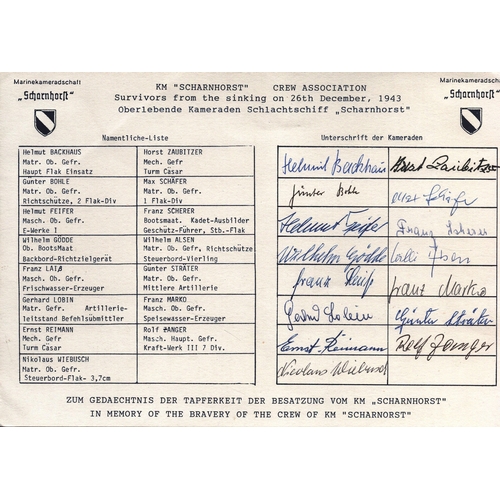 Marinekameradschaft
„Scharnhorst"
KM "SCHARNHORST" CREW ASSOCIATION
Survivors from the sinking on 26th December, 1943
Oberlebende Kameraden Schlachtschiff „Scharnhorst"
Marinekameradschaft
„Scharnhorst"
Namentliche-Liste
Helmut BACKHAUS
Matr. Ob. Gefr.
Haupt Flak Einsatz
Horst ZAUBITZER
Mech. Gefr
Turm Cäsar
Günter BOHLE
Matr. Ob. Gefr.
Richtschütze, 2 Flak-Div
Max SCHÄFER
Matr. Ob. Gefr.
1 Flak-Div
Helmut FEIFER
Masch. Ob. Gefr.
E-Werke I
Franz SCHERER
Bootsmaat. Kadet-Ausbilder
Geschütz-Führer, Stb.-Flak
Wilhelm GÖDDE
Ob. BootsMaat
Backbord-Richtzielgerät
Wilhelm ALSEN
Matr. Ob. Gefr, Richtschütze
Steuerbord-Vierling
Franz LAIß
Masch. Ob. Gefr.
Frischwasser-Erzeuger
Günter STRÄTER
Matr. Ob. Gefr.
Mittlere Artillerie
Gerhard LOBIN
Matr. Gefr. Artillerie-
leitstand Befehlsübmittler
Franz MARKO
Masch. Ob. Gefr.
Speisewasser-Erzeuger
Ernst REIMANN
Mech. Ob. Gefr.
Turm Cäsar
Rolf ZANGER
Masch. Haupt. Gefr.
Kraft-Werk III 7 Div.
Nikolaus WIEBUSCH
Matr. Ob. Gefr.
Steuerbord-Flak- 3,7cm
Unterschrift der Kameraden
Helmut Backhaus
Horst Zaubitzer
Günter Bohle
Max Schäfer
Helmut Feifer
Franz Scherer
Wilhelm Gödde
Willi Alsen
Franz Laiß
Franz Marko
Gerhard Lobin
Günter Sträter
Ernst Reimann
Rolf Zanger
Nicolaus Wiebusch
ZUM GEDAECHTNIS DER TAPFERKEIT DER BESATZUNG VOM KM „SCHARNHORST"
IN MEMORY OF THE BRAVERY OF THE CREW OF KM "SCHARNORST"